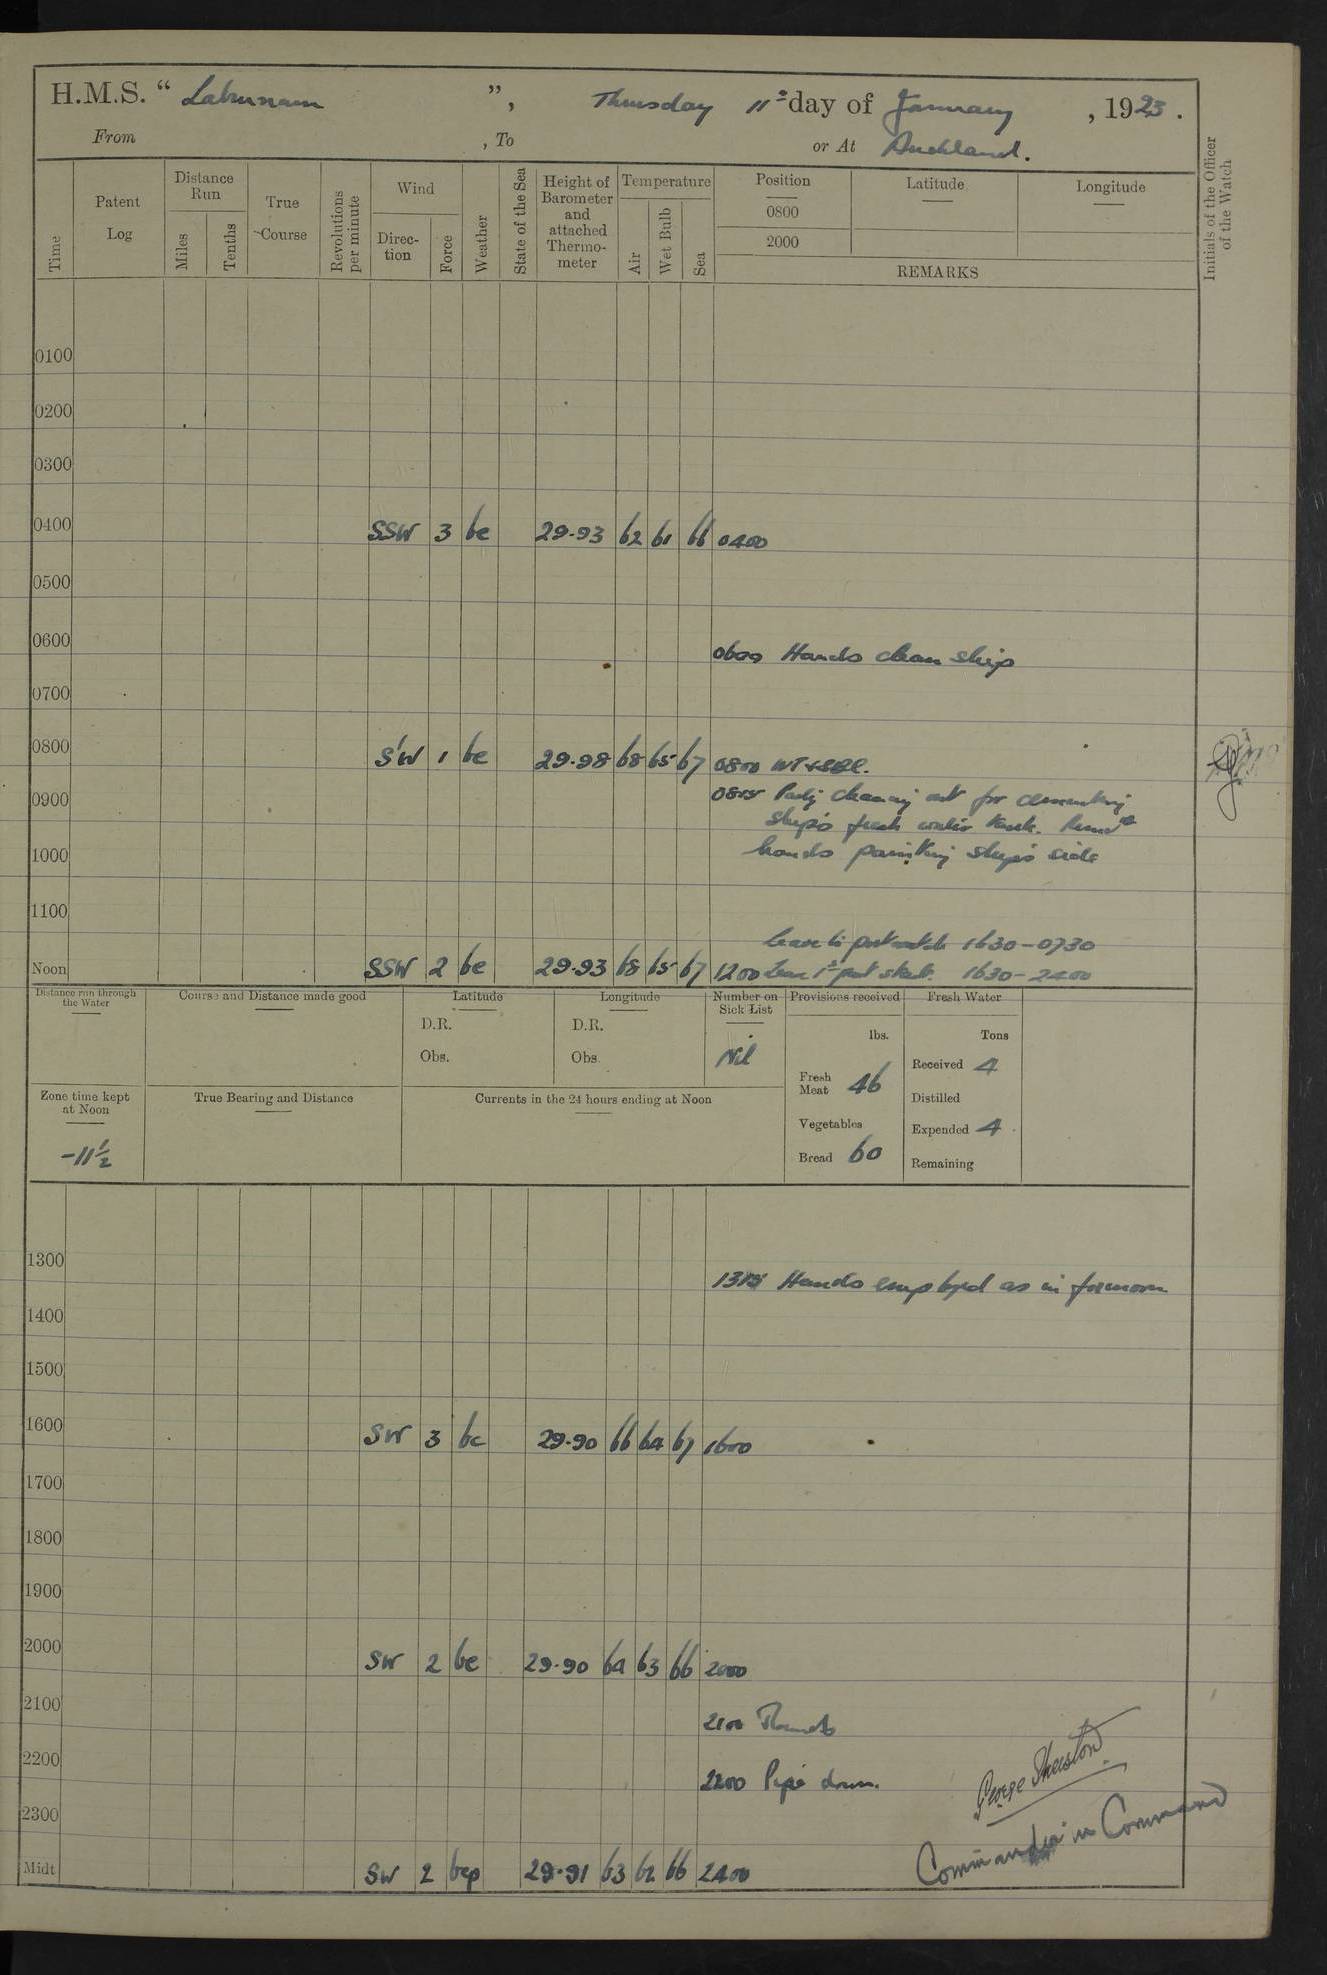 H.M.S. “ Laburnum ”, Thursday 11th day of January, 1923.
From , To or At Auckland.
Time
Patent Log
Distance Run
Miles
Tenths
True Course
Revolutions per minute
Wind
Direc-tion
Force
Weather
State of the Sea
Height of Barometer and attached Thermo-meter
Temperature
Air
Wet Bulb
Sea
Position Latitude Longitude
0800
2000
REMARKS
Initials of the Officer of the Watch
0100
0200
0300
0400 SSW 3 bc 29.93 62 61 66 0400
0500
0600 0600 Hands clean ship
0700
0800 S'W 1 bc 29.98 68 65 67 0800
0900 0815 Party cleaning out for cementing
ship's fresh water tank. Remdr
1000 hands painting ship's side
1100
Leave to port watch 1630-0730
Noon SSW 2 bc 29.93 68 65 67 1200 Leave 1st part starb. 1630-2400
Distance run through the Water
Course and Distance made good
Latitude
D.R.
Obs.
Longitude
D.R.
Obs.
Number on Sick List
Nil
Provisions received
lbs.
Fresh Meat 46
Vegetables
Bread 60
Fresh Water
Tons
Received 4
Distilled
Expended 4
Remaining
Zone time kept at Noon
-11½
True Bearing and Distance
Currents in the 24 hours ending at Noon
1300 1315 Hands employed as in forenoon
1400
1500
1600 SW 3 bc 29.90 66 64 67 1600
1700
1800
1900
2000 SW 2 bc 29.90 64 63 66 2000
2100 2100 Rounds
2200 2200 Pipe down.
2300
George Sherston
Commander in Command
Midt SW 2 bcp 29.91 63 62 66 2400